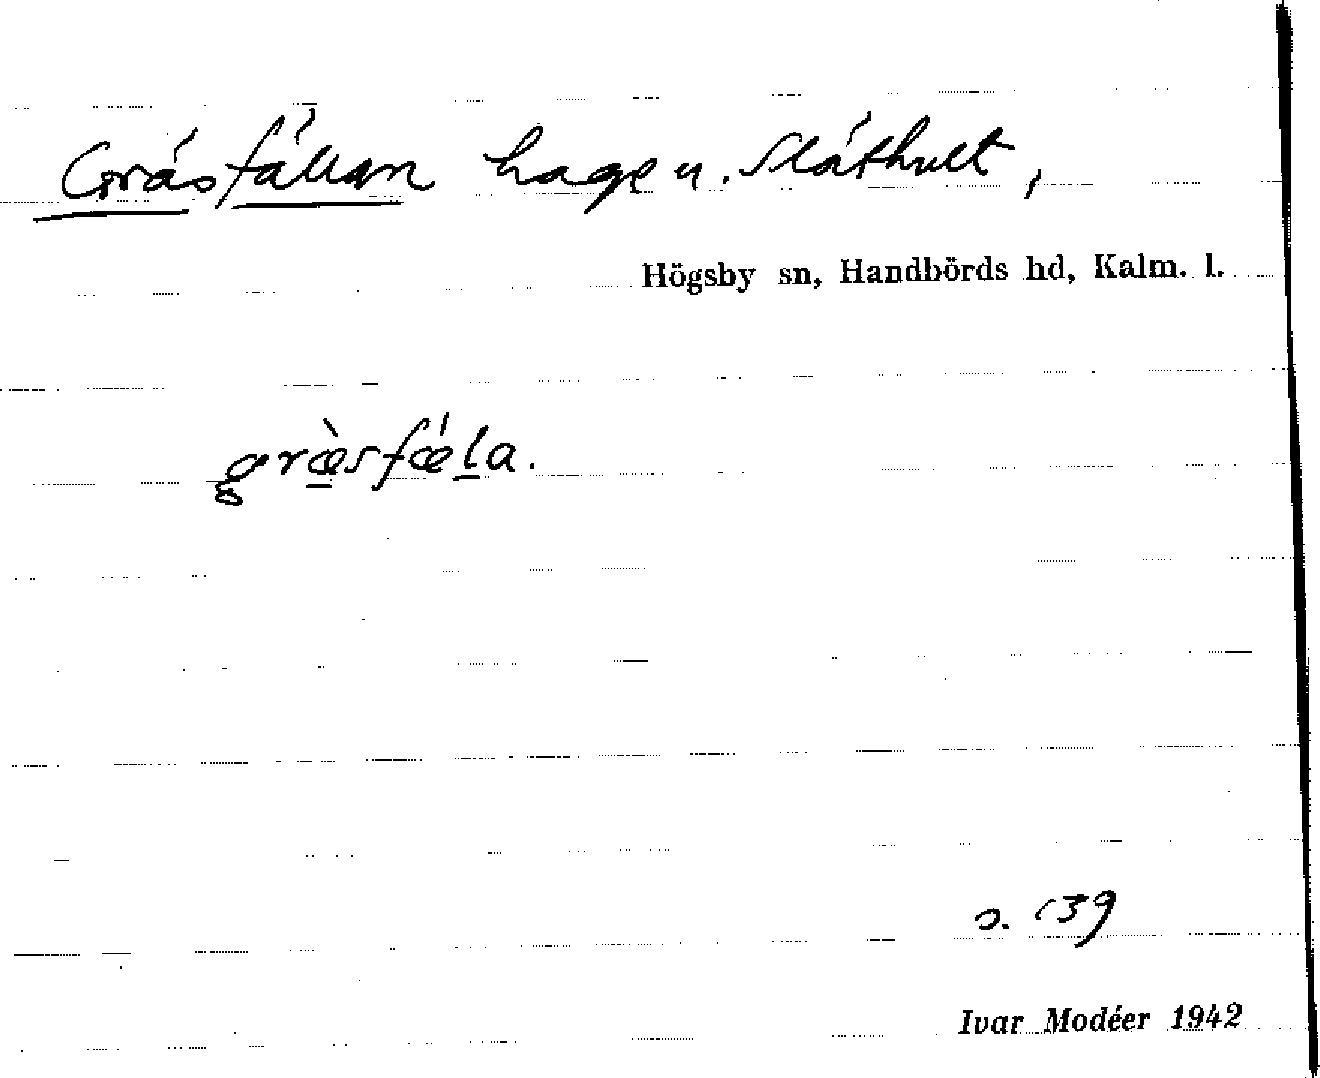 Gräsfällan hage u. Släthult,
Högsby sn, Handbörds hd, Kalm. l.
græ̀sfǽla.
s. 139
Ivar Modéer 1942